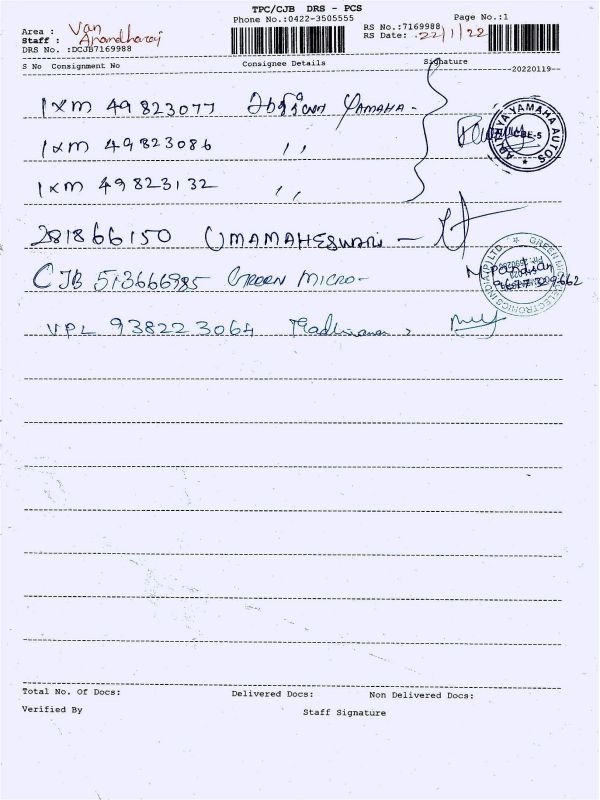 TPC/CJB DRS - PCS
Phone No.:0422-3505555 Page No.:1
Area : Van RS No.:7169988
Staff : Anandharaj RS Date: 22/1/22
DRS No. :DCJB7169988
S No Consignment No Consignee Details Signature
20220119
1xm 49823077 YAMAHA -
1xm 49823086 ,,
1xm 49823132 ,,
YAMAHA AUTOS
CBE-5
281866150 UMAMAHESWARI -
CJB 513666985 GREEN MICRO - N. Pandian
9677309662
VPL 938223064
Total No. Of Docs: Delivered Docs: Non Delivered Docs:
Verified By Staff Signature